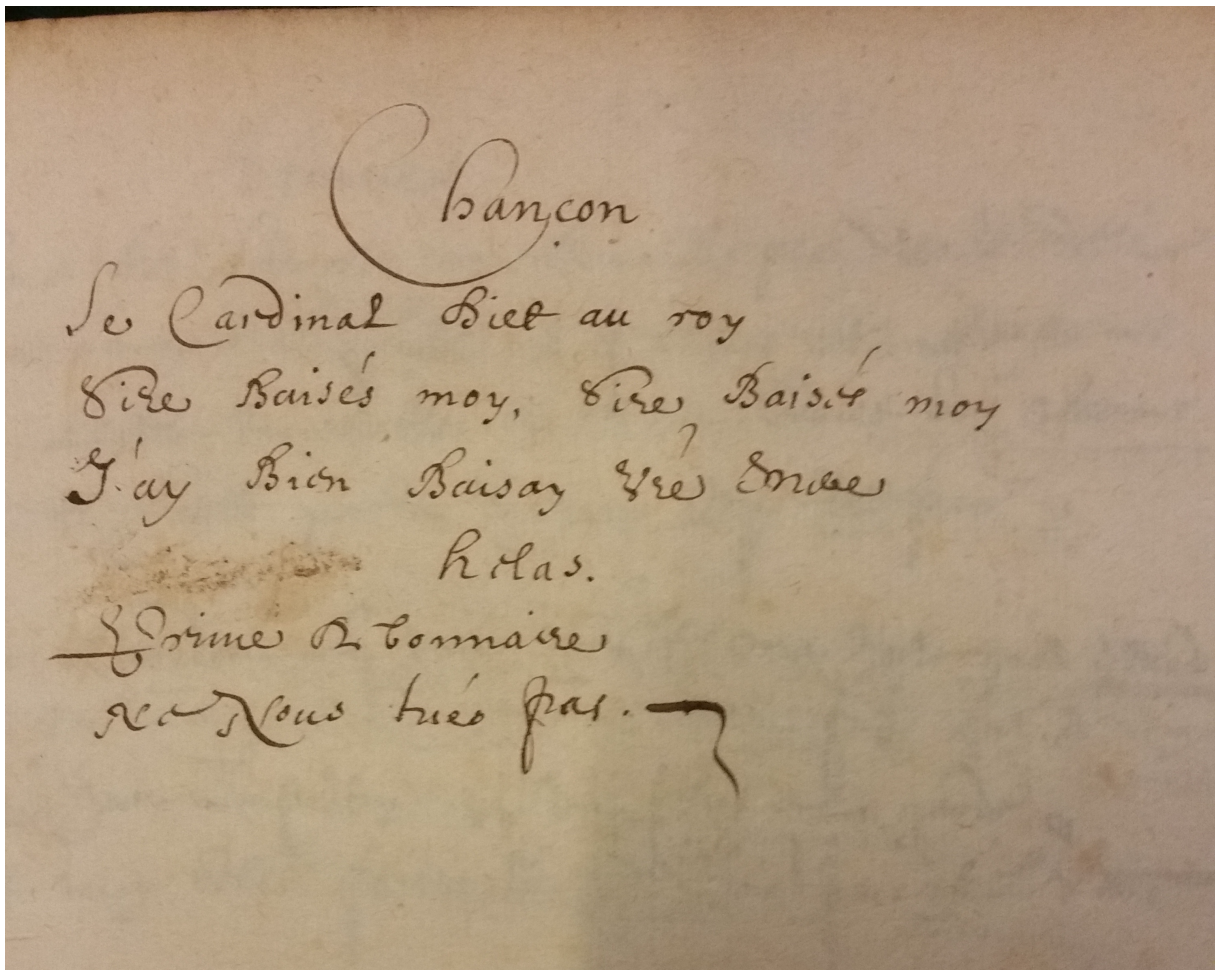 Chançon
Le Cardinal Diet au roy
Sire Baisés moy, Sire Baisés moy
J'ay Bien Baisay vre Mere
helas.
Prince De bonnaire
Ne Nous tués pas.